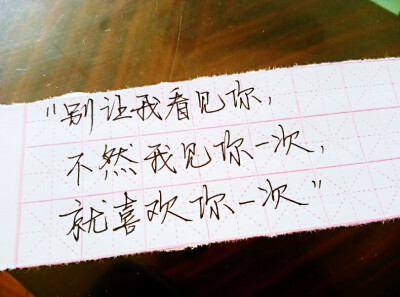 "别让我看见你,
不然我见你一次,
就喜欢你一次"